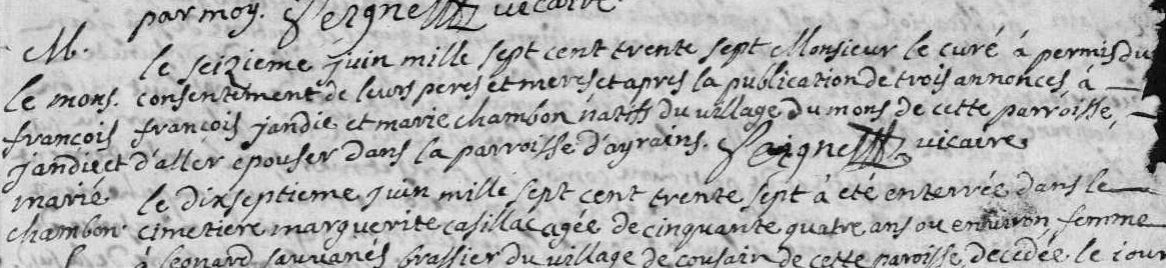 par moy. Seignett vicaire
M. le seizieme juin mille sept cent trente sept Monsieur le curé à permis du
le mons. consentement de leurs peres et meres et apres la publication de trois annonces, à
françois françois jandie et marie chambon natifs du village du mons de cette parroisse,
jandie et d'aller epouser dans la parroisse d'ayrains. vicaire
marie le dixseptieme juin mille sept cent trente sept à eté enterrée dans le
chambon cimetiere marguerite casillac agée de cinquante quatre ans ou environ, femme
à leonard sauvanés brassier du village de cousain de cette paroisse decedée le jour